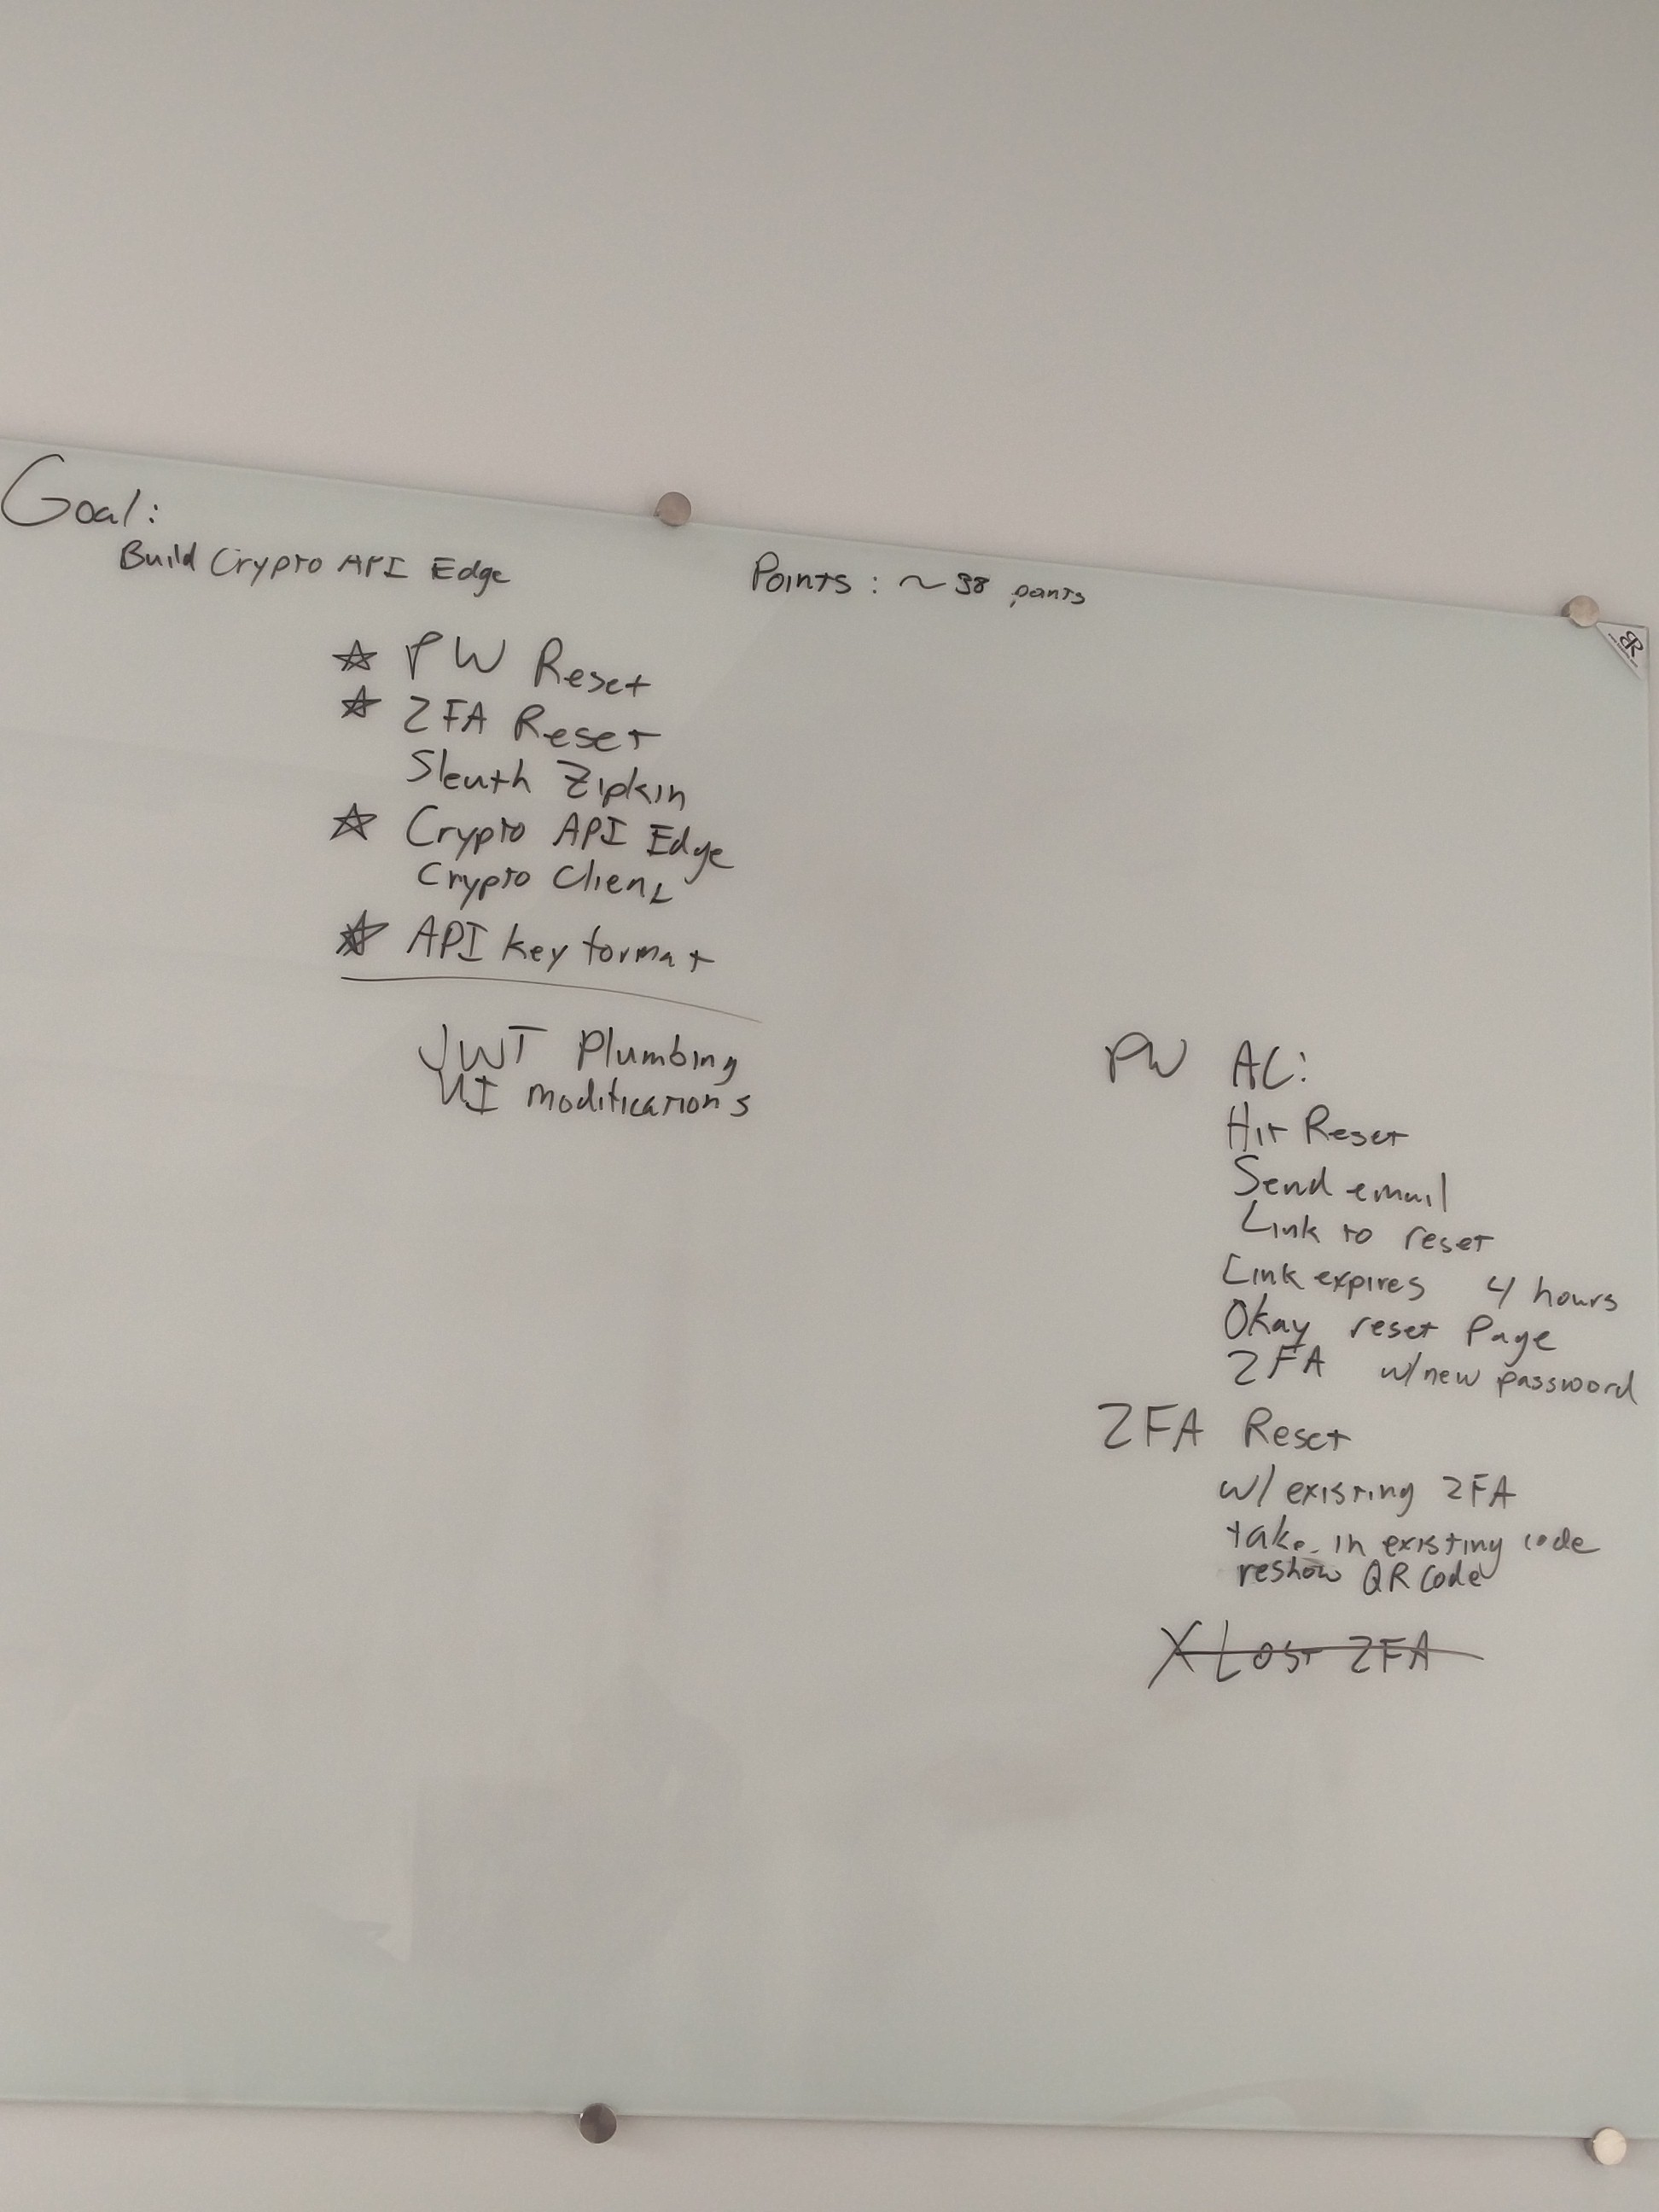 Goal:
Build Crypto API Edge
Points: ~38 points
☆ PW Reset
☆ 2FA Reset
Sleuth Zipkin
☆ Crypto API Edge
Crypto Client
☆ API key format
JWT Plumbing
UI modifications
PW AC:
Hit Reset
Send email
Link to reset
Link expires 4 hours
Okay reset Page
2FA w/new password
2FA Reset
w/ existing 2FA
take in existing code
reshow QR Code
X Lost 2FA